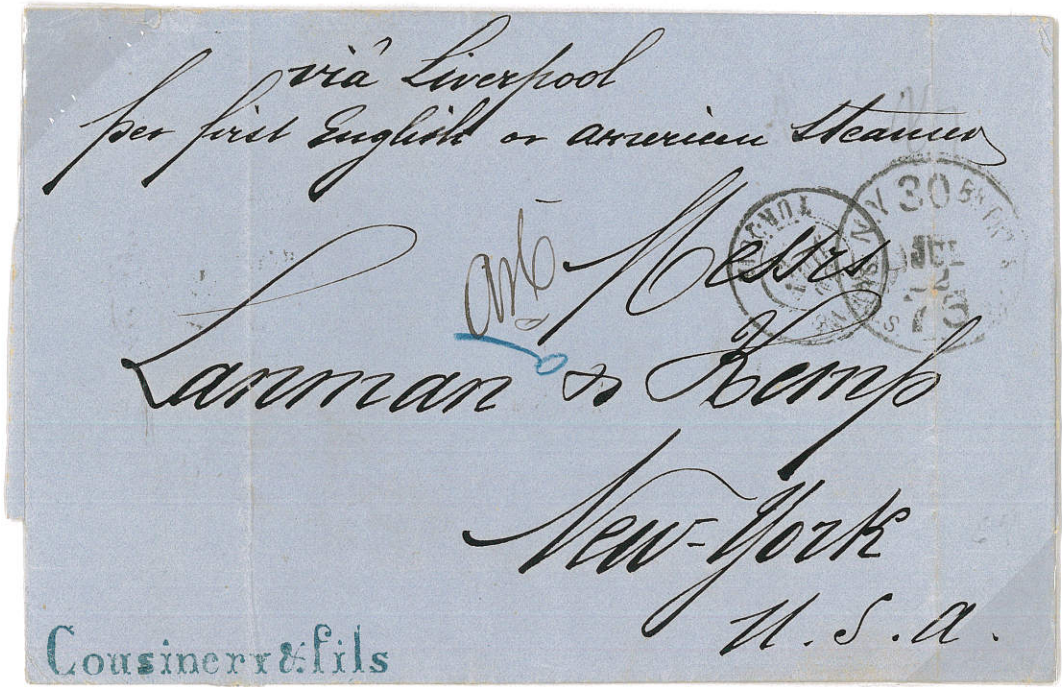 viâ Liverpool
per first English or american Steamer
Messrs
Lanman & Kemp
New-York
U. S. A.
N.Y 30
JUL
Cousinerr & fils